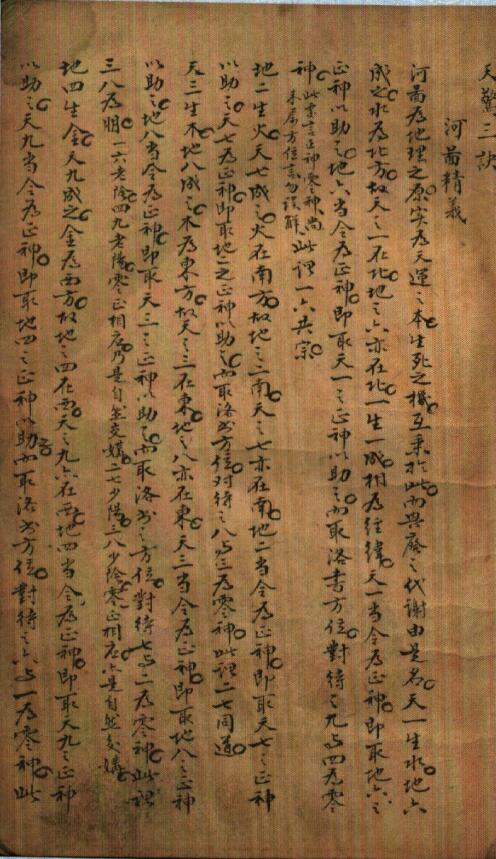 天驚三訣
河啚精義
河啚為地理之原实為天運之本生死之機互乗於此而興廢之代謝由是名天一生水地六
成之水為北方故天之一在北地之六亦在北一生一成相為経緯天一当令為正神即取地六之
正神以助之地六当令為正神即取天一之正神以助之而取洛書方位對待之九与四為零
神此零言正神零神尚未属方位言勿误解此谓一六共宗
地二生火天七成之火在南方故地之二南天之七亦在南地二当令為正神即取天七之正神
以助之天七為正神即取地二之正神以助之而取洛书方位对待之八与三為零神此谓二七同道
天三生木地八成之木為東方故天之三在東地之八亦在東天三当令為正神即取地八之正神
以助之地八当令為正神即取天三之正神以助之而取洛书之方位對待七与二為零神此谓
三八為朋一六老陰四九老陽零正相应乃是自然交媾二七少陽三八少阴零正相应亦是自然交媾
地四生金天九成之金為西方故地之四在西天之九亦在西地四当令為正神即取天九之正神
以助之天九当令為正神即取地四之正神以助而取洛书方位對待之六与一為零神此